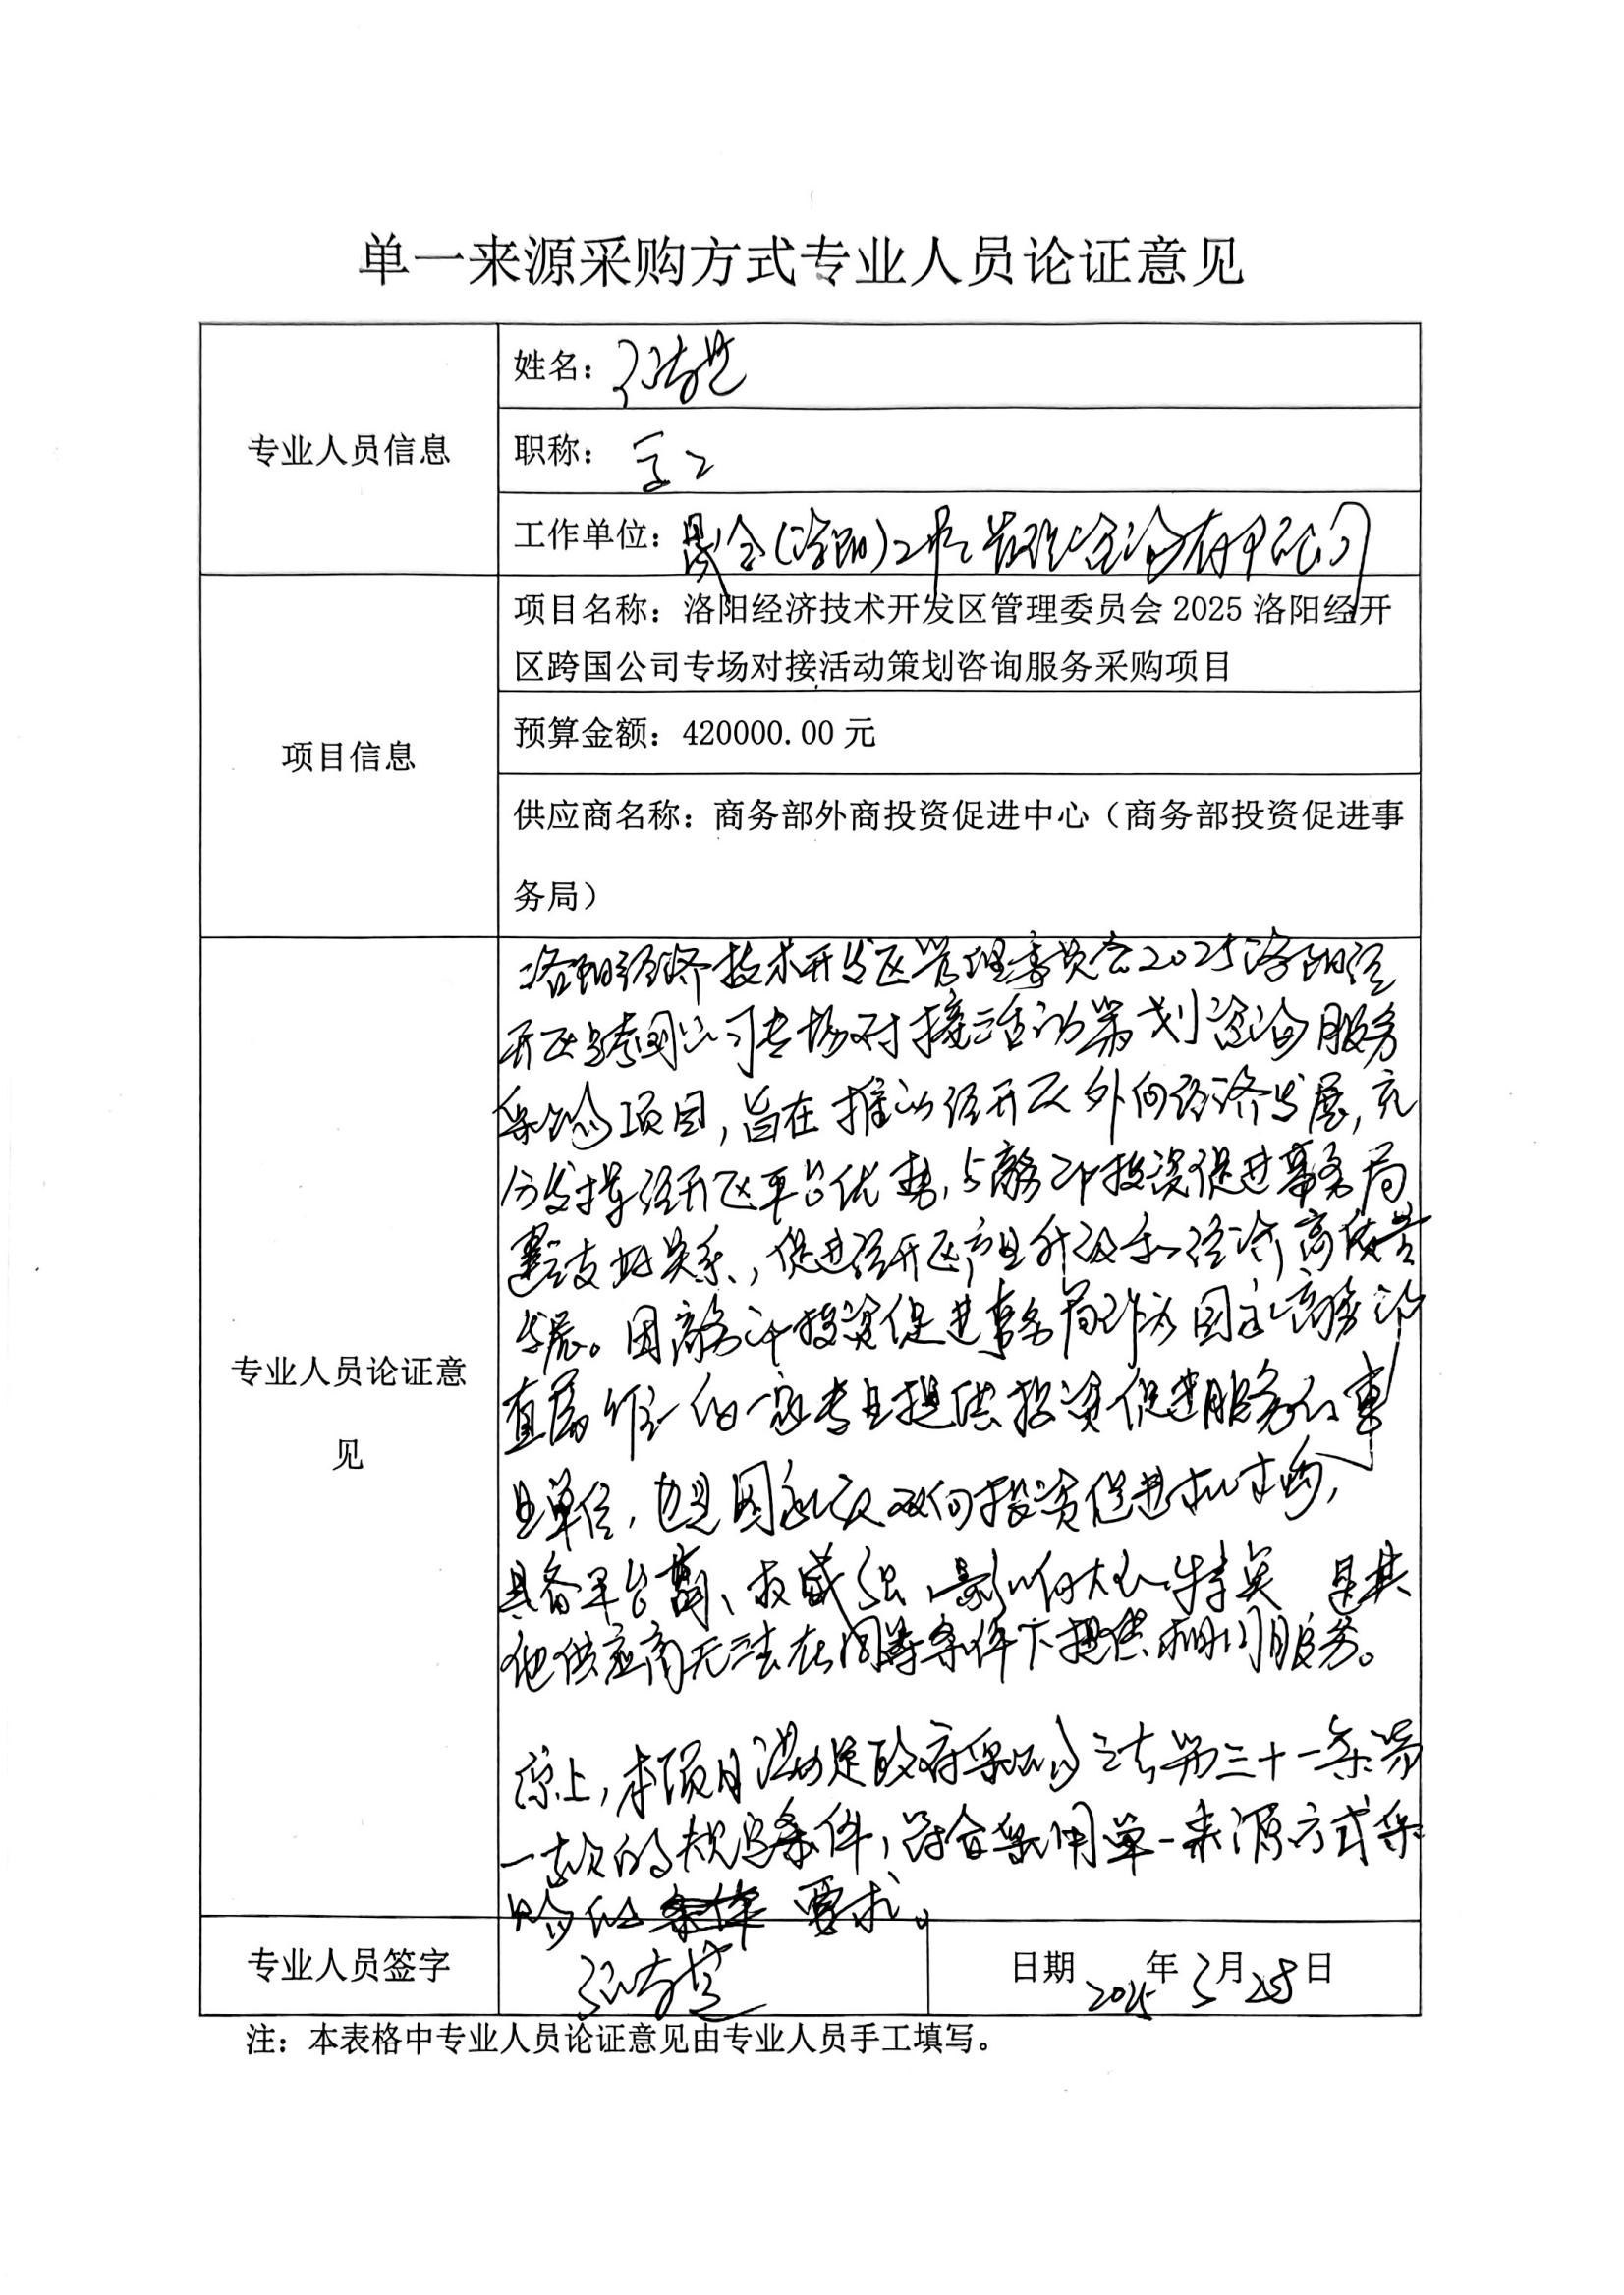 单一来源采购方式专业人员论证意见
专业人员信息
姓名：
职称：高工
工作单位：晟全（洛阳）工程管理咨询有限公司
项目信息
项目名称：洛阳经济技术开发区管理委员会 2025 洛阳经开
区跨国公司专场对接活动策划咨询服务采购项目
预算金额：420000.00 元
供应商名称：商务部外商投资促进中心（商务部投资促进事
务局）
专业人员论证意
见
洛阳经济技术开发区管理委员会2025洛阳经
开区跨国公司专场对接活动策划咨询服务
采购项目，旨在推动经开区外向经济发展，充
分发挥经开区平台优势，与商务部投资促进事务局
建立友好关系，促进经开区产业升级和经济高质量
发展。因商务部投资促进事务局作为国家商务部
直属唯一的一家专业提供投资促进服务的事
业单位，也是国家级双向投资促进机构，
具备平台高、权威强、影响大的特点 是其
他供应商无法在同等条件下提供相同服务。
综上，本项目满足政府采购法第三十一条第
一款的规定条件，符合采用单一来源方式采
购的 要求。
专业人员签字
日期 2025年3月28日
注：本表格中专业人员论证意见由专业人员手工填写。